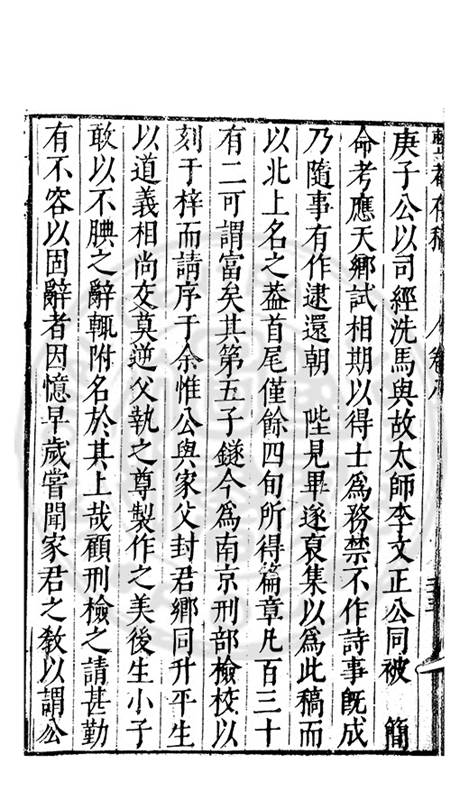 整菴存稿
卷八
庚子公以司經洗馬與故太師李文正公同被　簡
命考應天鄉試相期以得士爲務禁不作詩事旣成
乃隨事有作逮還朝　陛見畢遂裒集以爲此稿而
以北上名之葢首尾僅餘四旬所得篇章凡百三十
有二可謂富矣其第五子鐩今爲南京刑部檢校以
刻于梓而請序于余惟公與家父封君鄉同升平生
以道義相尚交莫逆父執之尊製作之美後生小子
敢以不腆之辭輒附名於其上哉顧刑檢之請甚勤
有不容以固辭者因憶早歲嘗聞家君之敎以謂公